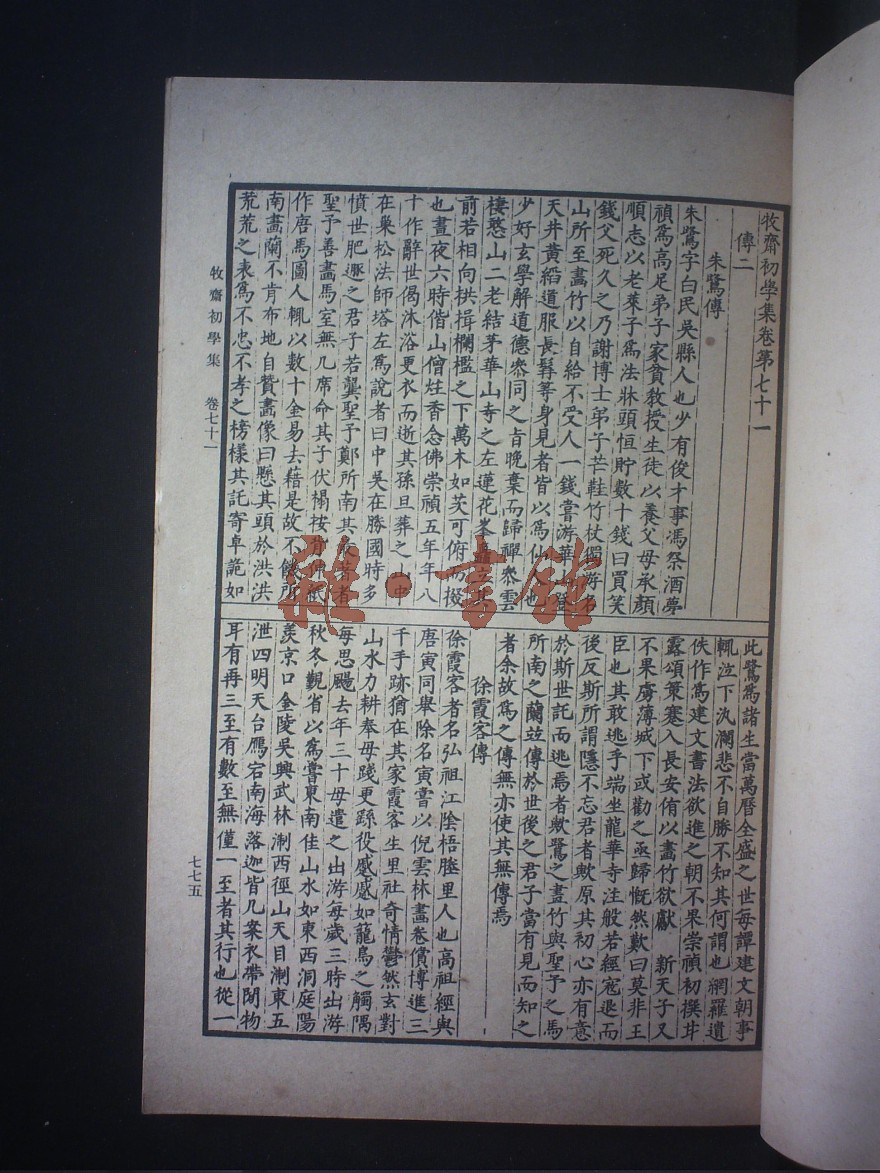 牧齋初學集卷第七十一
傳二
朱鷺傳
朱鷺字白民吳縣人也少有俊才事馮祭酒夢
禎爲高足弟子家貧敎授生徒以養父母承顏
順志以老萊子爲法牀頭恒貯數十錢曰買笑
錢父死久之乃謝博士弟子芒鞋竹杖獨游名
山所至畫竹以自給不受人一錢嘗游華山登
天井黃縚道服長髯等身見者皆以爲仙人也
少好玄學解道德叅同之旨晚棄而歸禪叅雲
棲憨山二老結茅華山寺之左蓮花峯矗立其
前若相向拱揖欄檻之下萬木如茨可俯而掇
也晝夜六時偕山僧炷香念佛崇禎五年年八
十作辭世偈沐浴更衣而逝其孫旦葬之山中
在巢松法師塔左爲說者曰中吳在勝國時多
憤世肥遯之君子若龔聖予鄭所南其最著者
聖予善畫馬室無几席命其子伏榻按背伸紙
作唐馬圖人輒以數十金易去藉是故不饑所
南畫蘭不肯布地自贊畫像曰懸其頭於洪洪
荒荒之表爲不忠不孝之榜樣其託寄卓詭如
此鷺爲諸生當萬曆全盛之世每譚建文朝事
輒泣下汍瀾悲不自勝不知其何謂也網羅遺
佚作爲建文書法欲進之朝不果崇禎初撰甘
露頌策蹇入長安侑以畫竹欲獻　新天子又
不果虜薄城下或勸之亟歸慨然歎曰莫非王
臣也其敢逃乎端坐龍華寺注般若經寇退而
後反斯所謂隱不忘君者歟原其初心亦有意
於斯世託而逃焉者歟鷺之畫竹與聖予之馬
所南之蘭竝傳於世後之君子當有見而知之
者余故爲之傳無亦使其無傳焉
徐霞客傳
徐霞客者名弘祖江陰梧塍里人也高祖經與
唐寅同舉除名寅嘗以倪雲林畫卷償博進三
千手跡猶在其家霞客生里社奇情鬱然玄對
山水力耕奉母踐更繇役蹙蹙如籠鳥之觸隅
每思颺去年三十母遣之出游每歲三時出游
秋冬覲省以爲嘗東南佳山水如東西洞庭陽
羨京口金陵吳興武林淛西徑山天目淛東五
泄四明天台鴈宕南海落迦皆几案衣帶閒物
耳有再三至有數至無僅一至者其行也從一
牧齋初學集　卷七十一
七七五
雜·書館